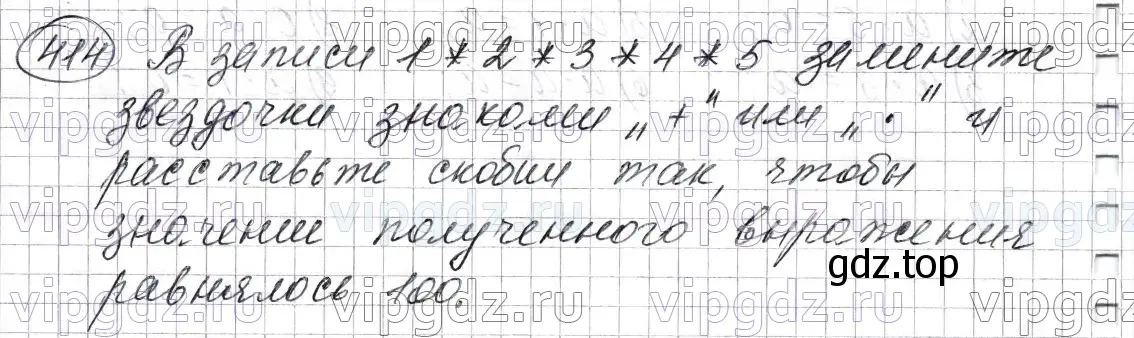 414 В записи 1 * 2 * 3 * 4 * 5 замените
звездочки знаками „+" или „·" и
расставьте скобки так, чтобы
значение полученного выражения
равнялось 100.
vipgdz.ru
gdz.top